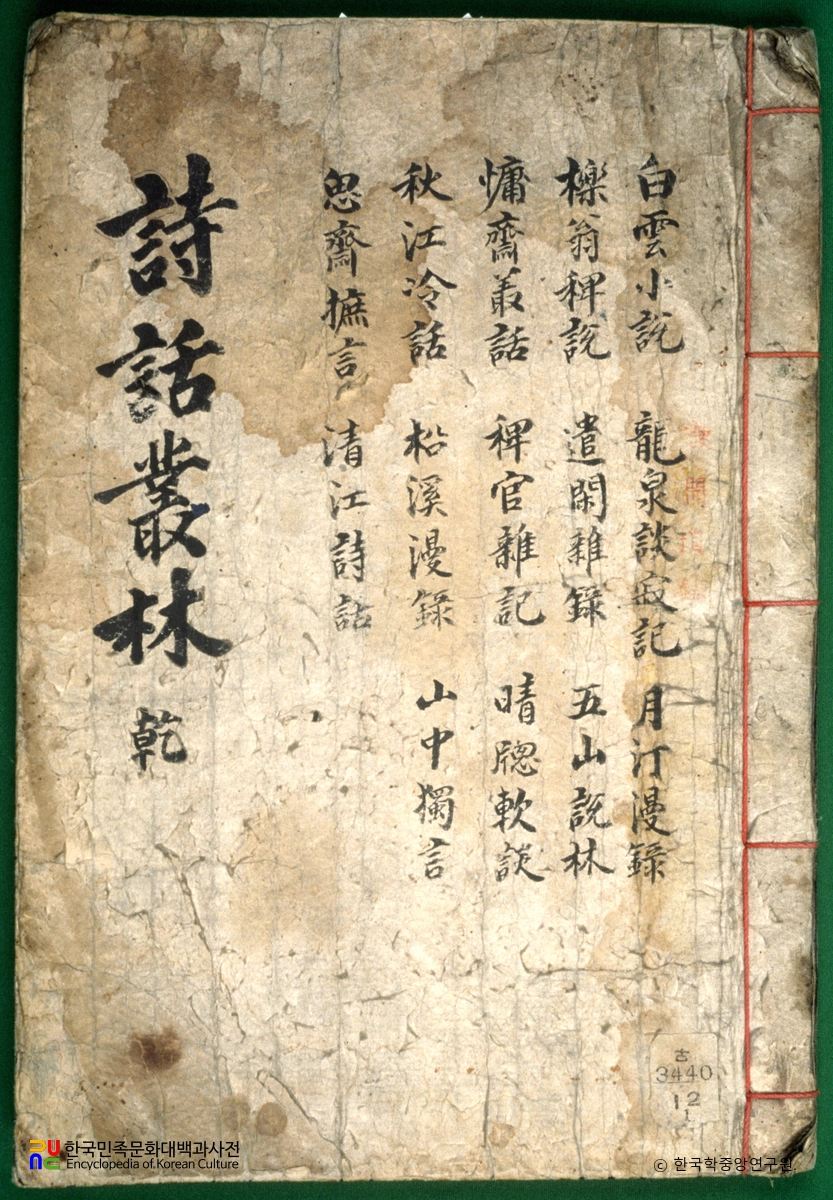 白雲小說 龍泉談寂記 月汀漫錄
櫟翁稗說 遣閑雜錄 五山說林
慵齋叢話 稗官雜記 晴牕軟談
秋江冷話 松溪漫錄 山中獨言
思齋摭言 清江詩話
詩話叢林 乾
古
3440
12
1
한국민족문화대백과사전
Encyclopedia of Korean Culture
© 한국학중앙연구원